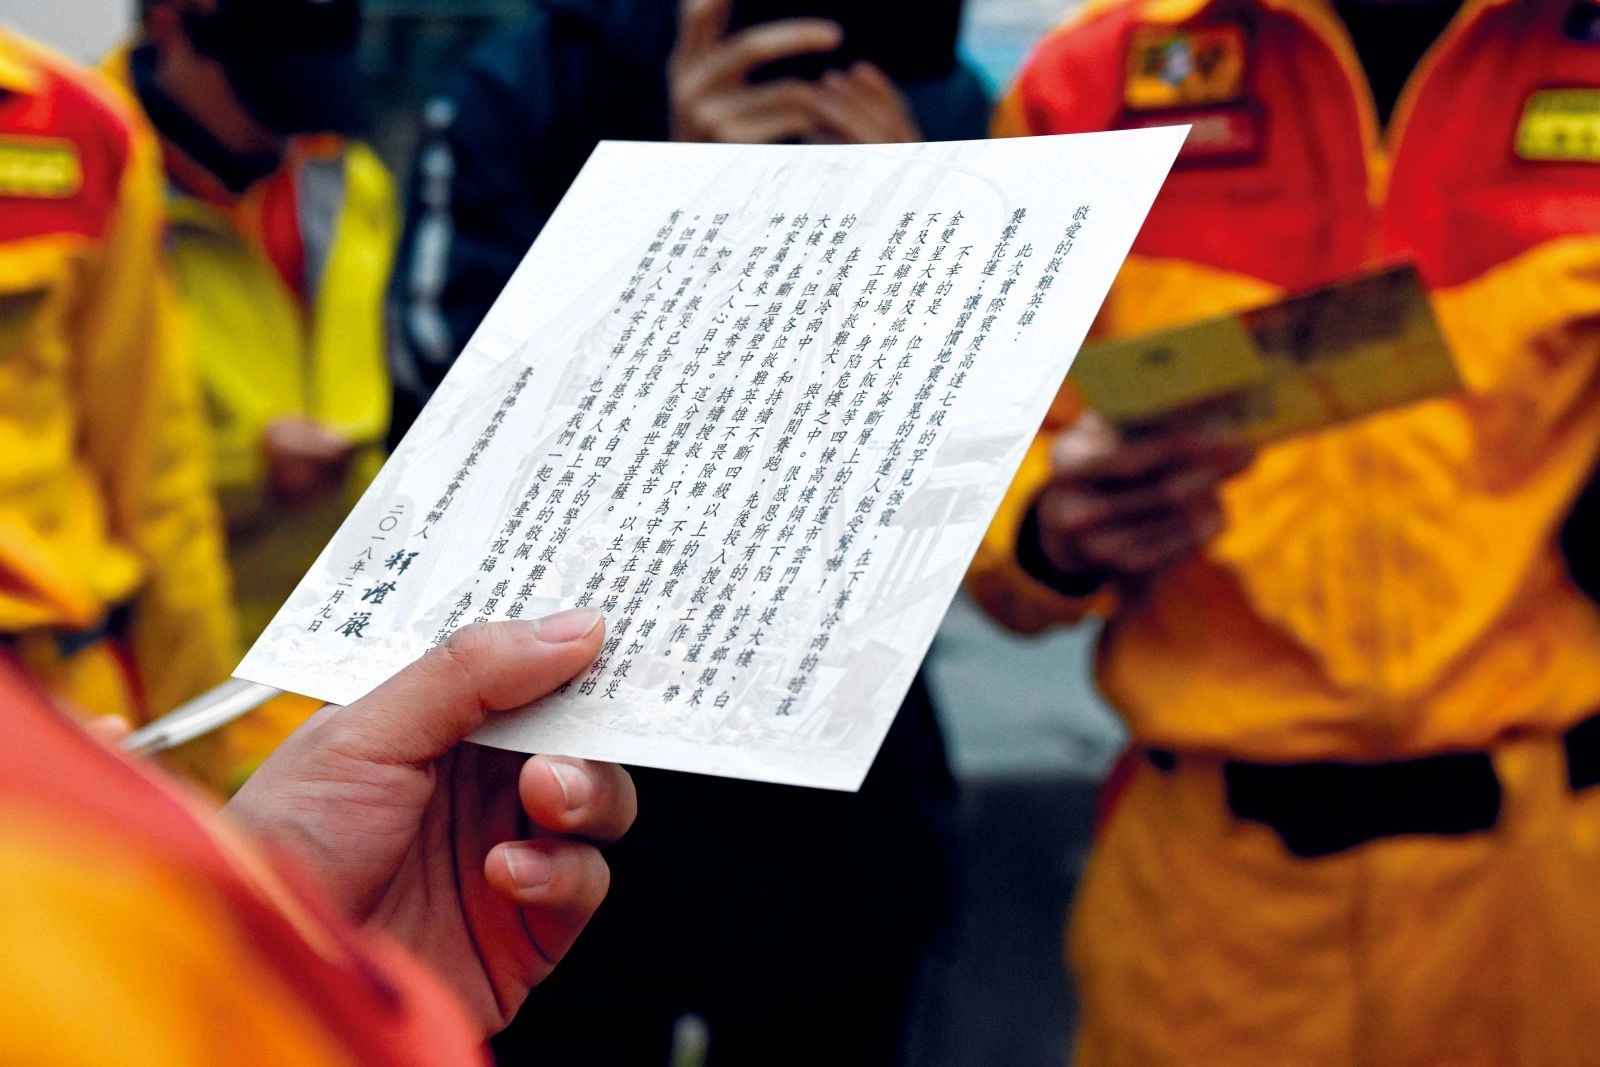 敬愛的救難英雄：
此次實際震度高達七級的罕見強震，在下著冷雨的暗夜
襲擊花蓮；讓習慣地震搖晃的花蓮人飽受驚嚇！
不幸的是，位在米崙斷層上的花蓮市雲門翠堤大樓、白
金雙星大樓及統帥大飯店等四棟高樓傾斜下陷，許多鄉親來
不及逃離現場，身陷危樓之中。很感恩所有的救難菩薩，帶
著搜救工具和救難犬，與時間賽跑，先後投入搜救工作。
在寒風冷雨中，和持續不斷四級以上的餘震，增加救災
的難度。但見各位救難英雄不畏險難，不斷進出持續傾斜的
大樓，在斷垣殘壁中，持續搜救；只為守候在現場
的家屬帶來一線希望。這分聞聲救苦，以生命搶救
神，即是人人心目中的大悲觀世音菩薩。
如今，救災已告段落，來自四方的警消救難英雄
回崗位，謹代表所有慈濟人獻上無限的敬佩、感恩
。但願人人平安吉祥，也讓我們一起為臺灣祝福，為花蓮
有的鄉親祈禱。
臺灣佛教慈濟基金會創辦人 釋證嚴
二〇一八年二月九日